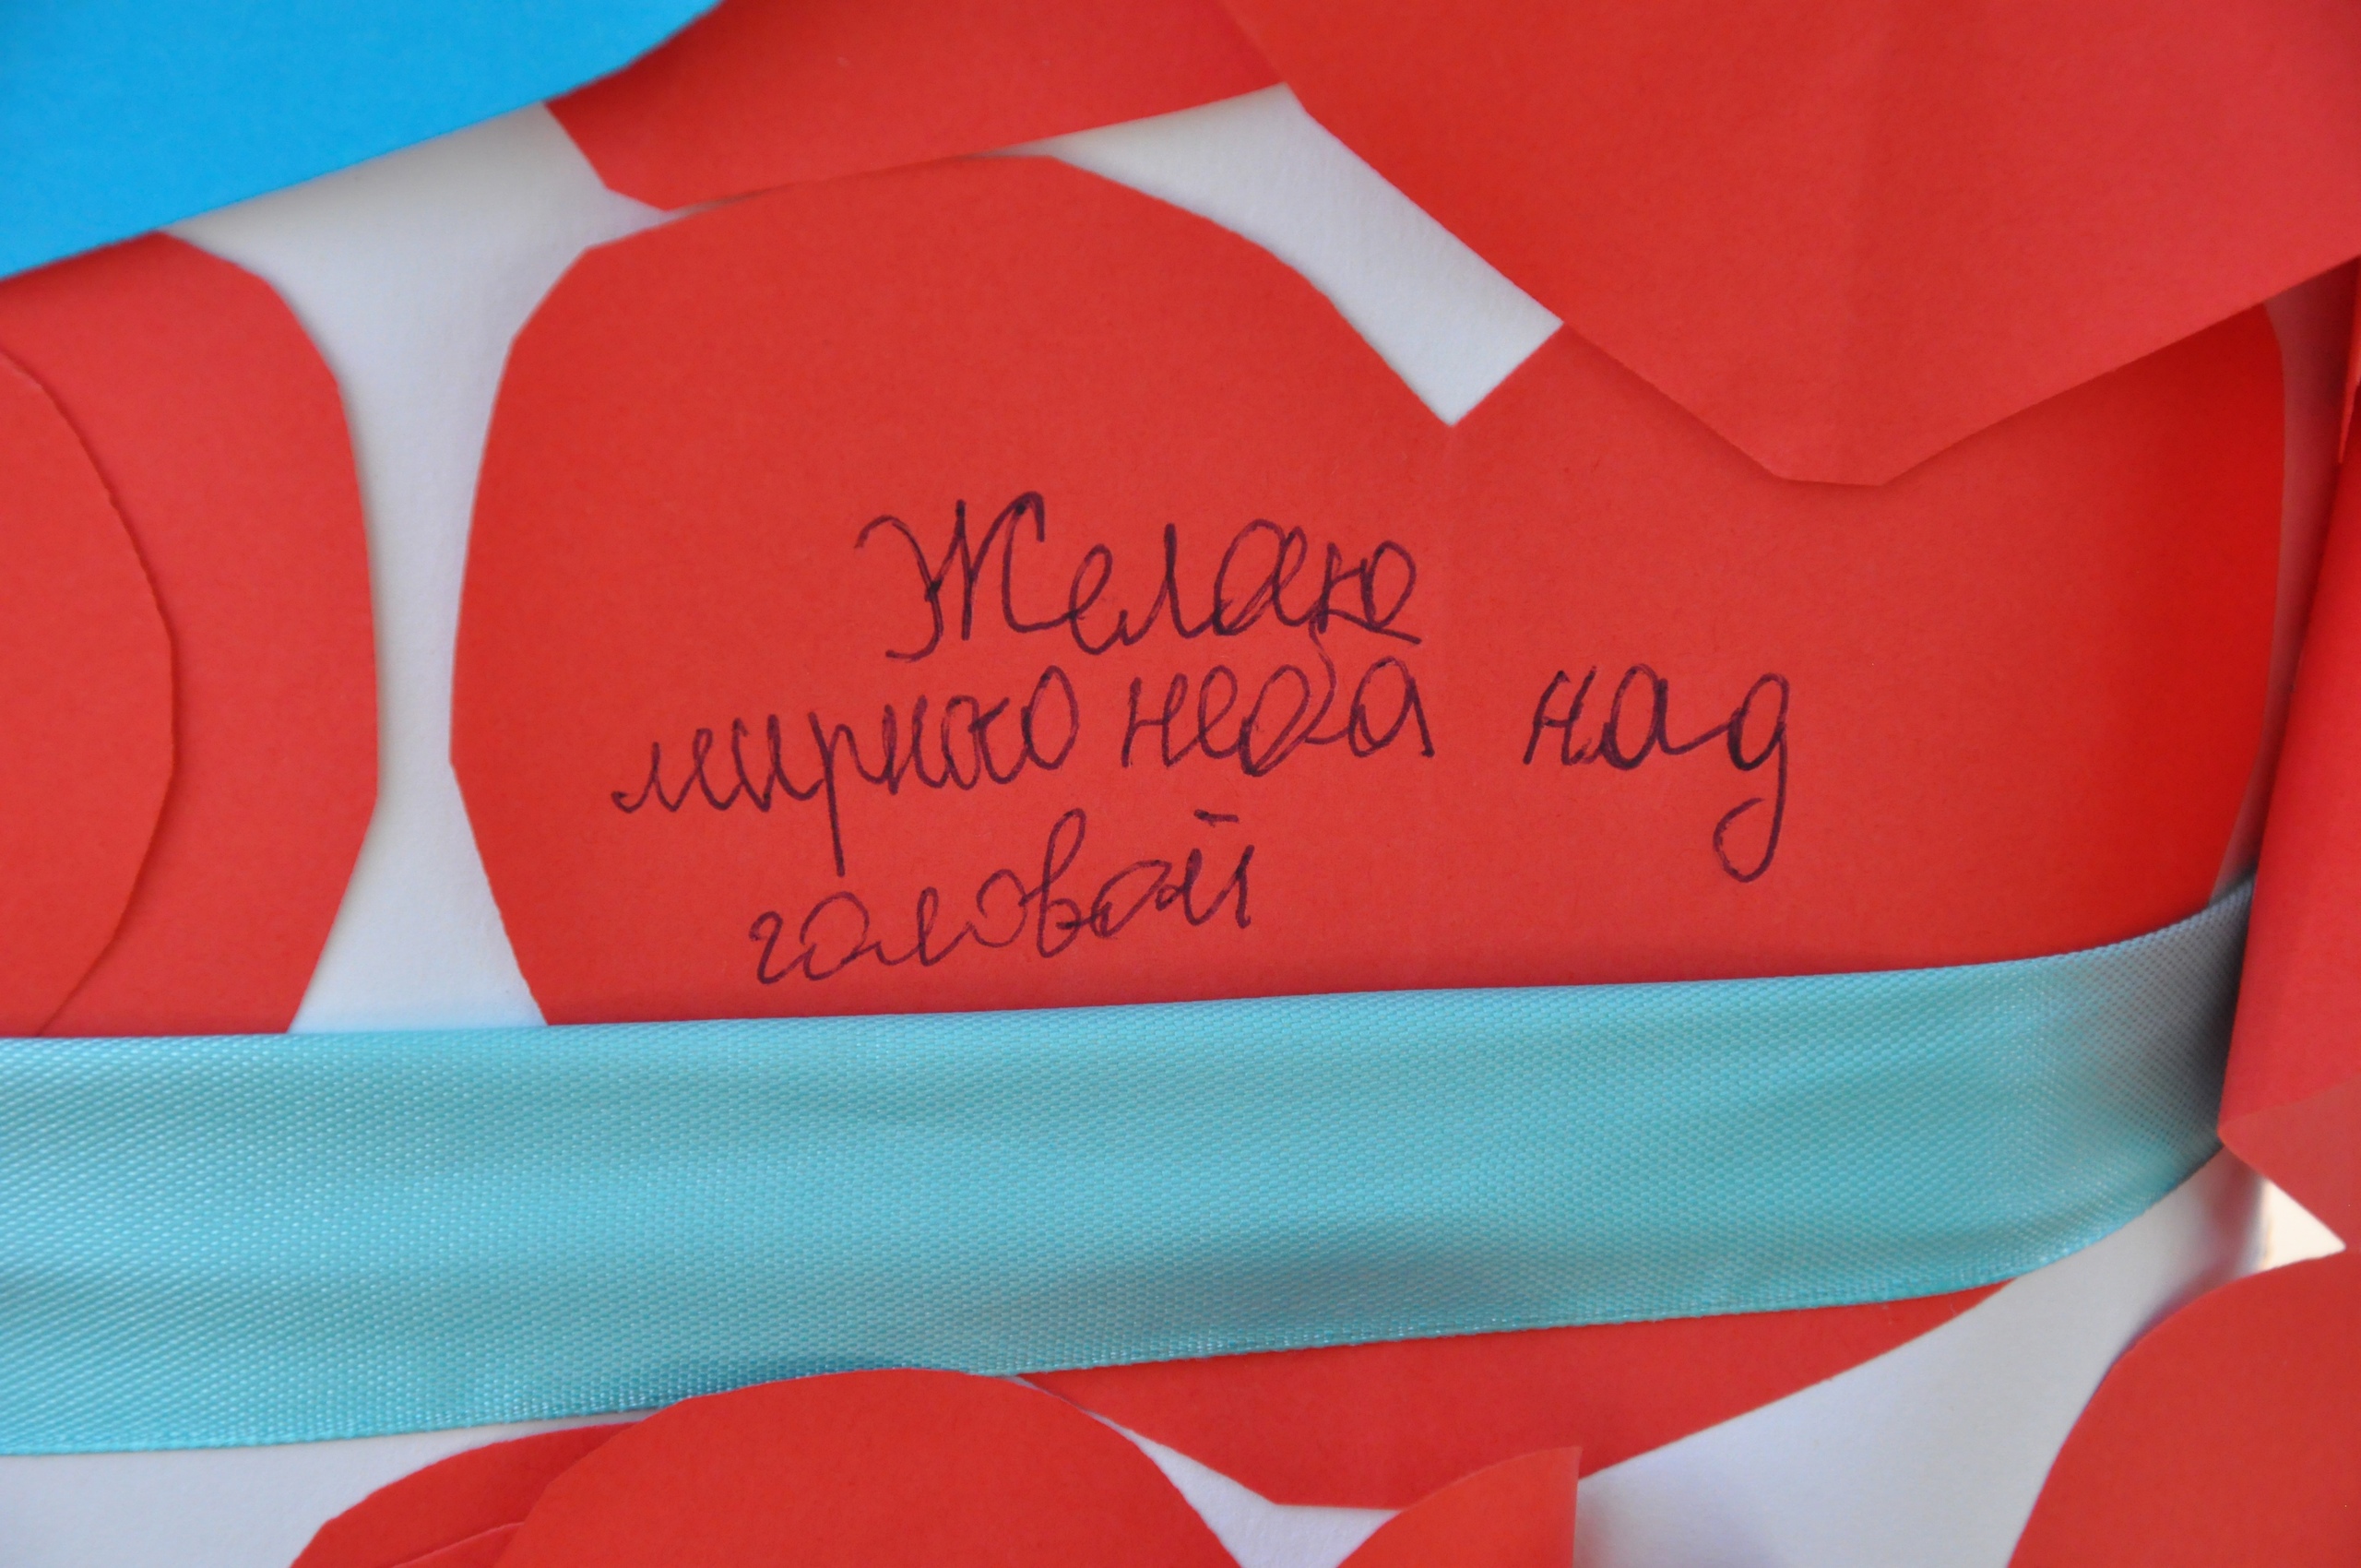 Желаю
мирного неба над
головой